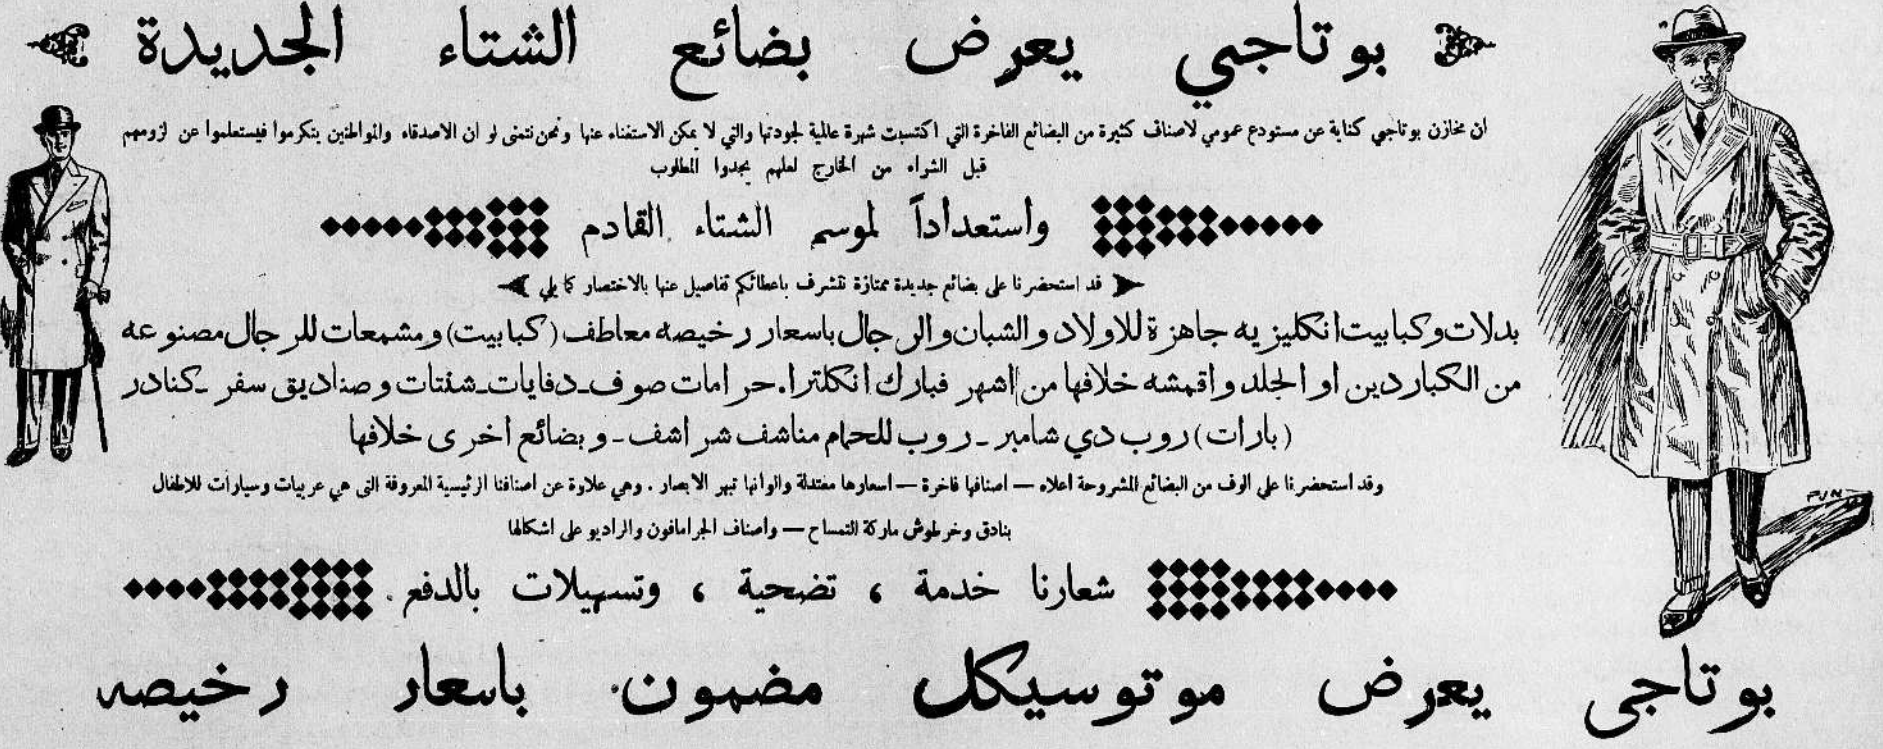 بوتاجي يعرض بضائع الشتاء الجديدة
ان مخازن بوتاجي كناية عن مستودع عمومي لاصناف كثيرة من البضائع الفاخرة التي اكتسبت شهرة عالمية لجودتها والتي لا يمكن الاستغناء عنها ونحن نتمنى لو ان الاصدقاء والمواطنين يتكرموا فيستعلموا عن لزومهم
قبل الشراء من الخارج لعلهم يجدوا المطلوب
واستعداداً لموسم الشتاء القادم
قد استحضرنا على بضائع جديدة ممتازة نتشرف باعطائكم تفاصيل عنها بالاختصار كما يلي
بدلات وكبابيت انكليزيه جاهزة للاولاد والشبان والرجال باسعار رخيصه معاطف (كبابيت) ومشمعات للرجال مصنوعه
من الكباردين او الجلد واقمشه خلافها من اشهر فبارك انكلترا. حرامات صوف ـ دفايات ـ شنتات وصناديق سفر ـ كنادر
(بارات) روب دي شامبر ـ روب للحمام مناشف شراشف ـ وبضائع اخرى خلافها
وقد استحضرنا على الوف من البضائع المشروحة اعلاه — اصنافها فاخرة — اسعارها معتدلة والوانها تبهر الابصار . وهي علاوة عن اصنافنا الرئيسية المعروفة التى هي عربيات وسيارات للاطفال
بنادق وخرطوش ماركة التمساح — واصناف الجرامافون والراديو على اشكالها
شعارنا خدمة ، تضحية ، وتسهيلات بالدفع .
بوتاجى يعرض موتوسيكل مضمون باسعار رخيصه